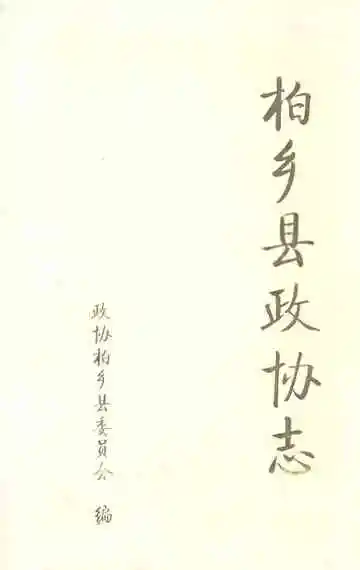 柏乡县政协志
政协柏乡县委员会 编